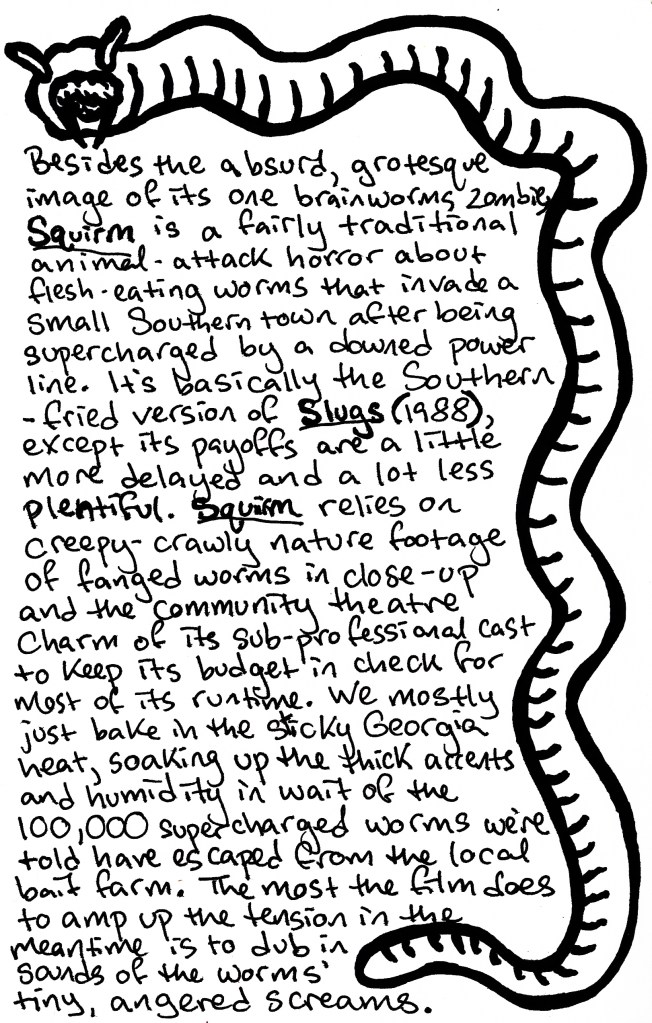 Besides the absurd, grotesque
image of its one brainworms zombie,
Squirm is a fairly traditional
animal-attack horror about
flesh-eating worms that invade a
small Southern town after being
supercharged by a downed power
line. It's basically the Southern
-fried version of Slugs (1988),
except its payoffs are a little
more delayed and a lot less
plentiful. Squirm relies on
creepy-crawly nature footage
of fanged worms in close-up
and the community theatre
charm of its sub-professional cast
to keep its budget in check for
most of its runtime. We mostly
just bake in the sticky Georgia
heat, soaking up the thick accents
and humidity in wait of the
100,000 supercharged worms we're
told have escaped from the local
bait farm. The most the film does
to amp up the tension in the
meantime is to dub in
sounds of the worms'
tiny, angered screams.